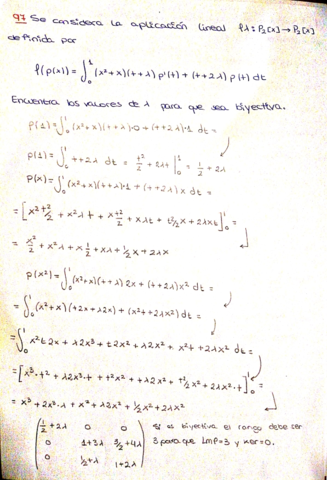 97 Se considera la aplicación lineal fλ: P₂[x] → P₂[x]
definida por
f(p(x)) = ∫₀¹ (x²+x)(t+λ) p'(t) + (t+2λ) p(t) dt
Encuentra los valores de λ para que sea biyectiva.
p(1) = ∫₀¹ (x²+x)(t+λ)·0 + (t+2λ)·1 dt =
p(1) = ∫₀¹ t+2λ dt = t²/2 + 2λt |₀¹ = 1/2 + 2λ
p(x) = ∫₀¹ (x²+x)(t+λ)·1 + (t+2λ)x dt =
= [x² t²/2 + x²λt + x t²/2 + xλt + t²/2 x + 2λxt]₀¹ =
= x²/2 + x²λ + x 1/2 + xλ + 1/2 x + 2λx
p(x²) = ∫₀¹ (x²+x)(t+λ) 2x + (t+2λ)x² dt =
= ∫₀¹ (x²+x)(t2x + λ2x) + (x²t + 2λx²) dt =
= ∫₀¹ x²t2x + λ2x³ + t2x² + λ2x² + x²t + 2λx² dt =
= [x³·t² + λ2x³·t + t²x² + tλ2x² + t²/2 x² + 2λx²·t]₀¹ =
= x³ + 2x³·λ + x² + λ2x² + 1/2 x² + 2λx²
(1/2+2λ 0 0
0 1+3λ 3/2+4λ
0 1/2+λ 1+2λ)
Si es biyectiva el rango debe ser
3 para que Imf=3 y Ker=0.